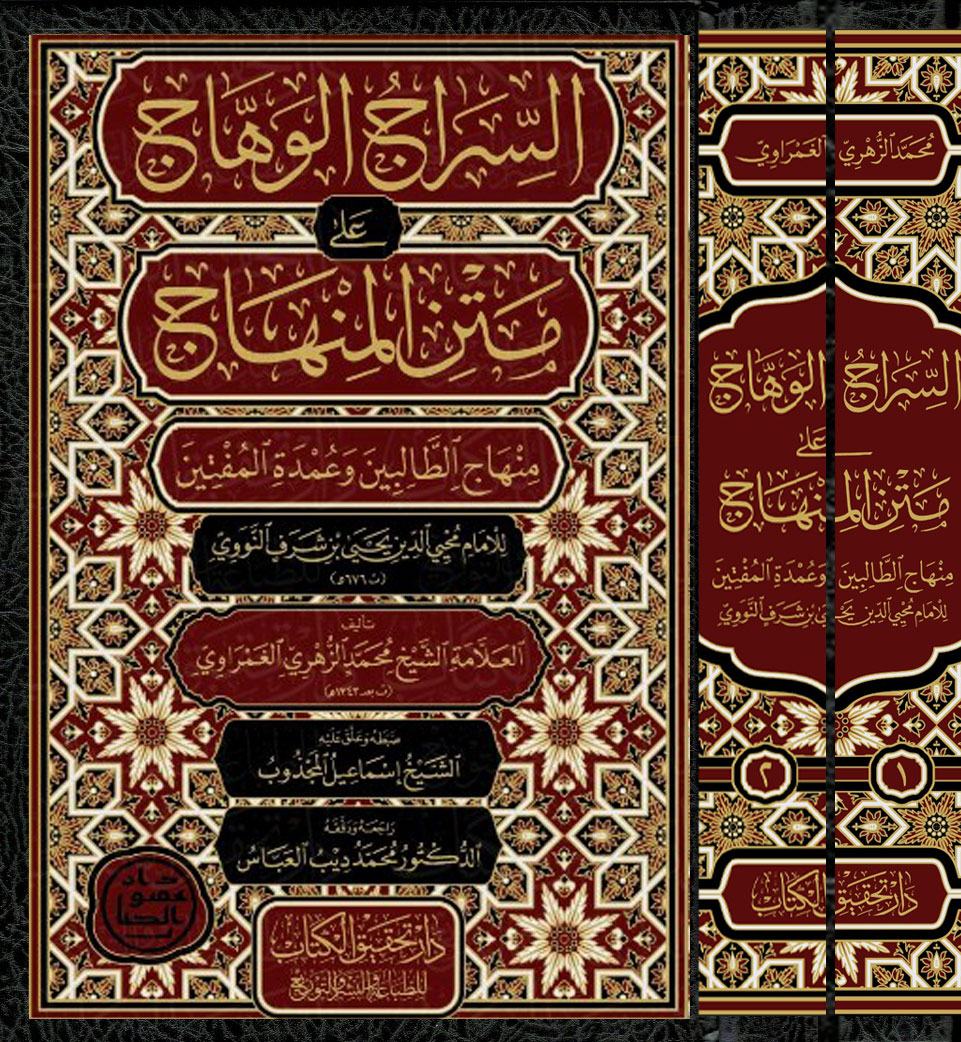 السِّرَاجُ الوَهَّاج
عَلَى
مَتْنِ المِنْهَاج
مِنْهَاجِ الطَّالِبِينَ وَعُمْدَةِ المُفْتِينَ
لِلْإِمَامِ مُحْيِي الدِّينِ يَحْيَى بْنِ شَرَفٍ النَّوَوِيِّ
(ت ٦٧٦ه)
تأليف
العَلَّامَةِ الشَّيْخِ مُحَمَّدٍ الزُّهْرِيِّ الغَمْرَاوِيِّ
(ت بعد ١٣٤٣ه)
ضبطه وعلق عليه
الشَّيْخُ إِسْمَاعِيلُ المَجْذُوبُ
راجعه ودققه
الدُّكْتُورُ مُحَمَّد دِيبُ العَبَّاسُ
دار تحقيق الكتاب
للطباعة والنشر والتوزيع
مُحَمَّد الزُّهْرِي الغَمْرَاوِيّ
السِّرَاجُ الوَهَّاج
عَلَى
مَتْنِ المِنْهَاج
مِنْهَاجِ الطَّالِبِينَ وَعُمْدَةِ المُفْتِينَ
لِلْإِمَامِ مُحْيِي الدِّينِ يَحْيَى بْنِ شَرَفٍ النَّوَوِيِّ
١ ٢
دار تحقيق الكتاب